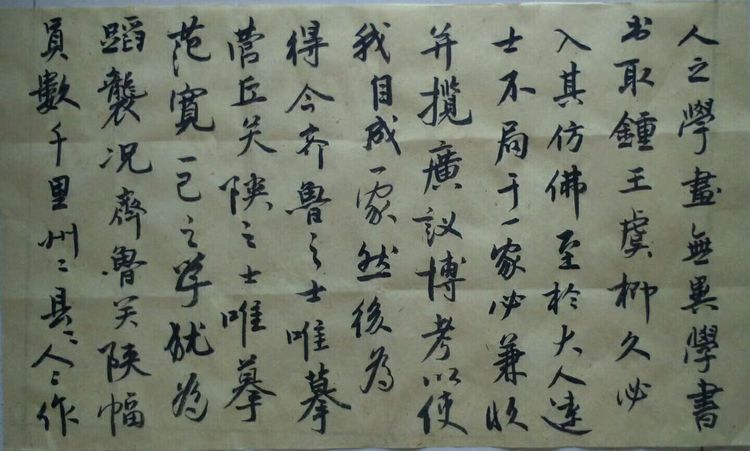 人之學畫無異學書
书取鍾王虞柳久必
入其仿佛至於大人達
士不局于一家必兼收
并攬廣議博考以使
我自成一家然後為
得今齐魯之士唯摹
营丘关陕之士唯摹
范寬一己之学犹為
蹈襲况齊魯关陕幅
員數千里州二县二人二作